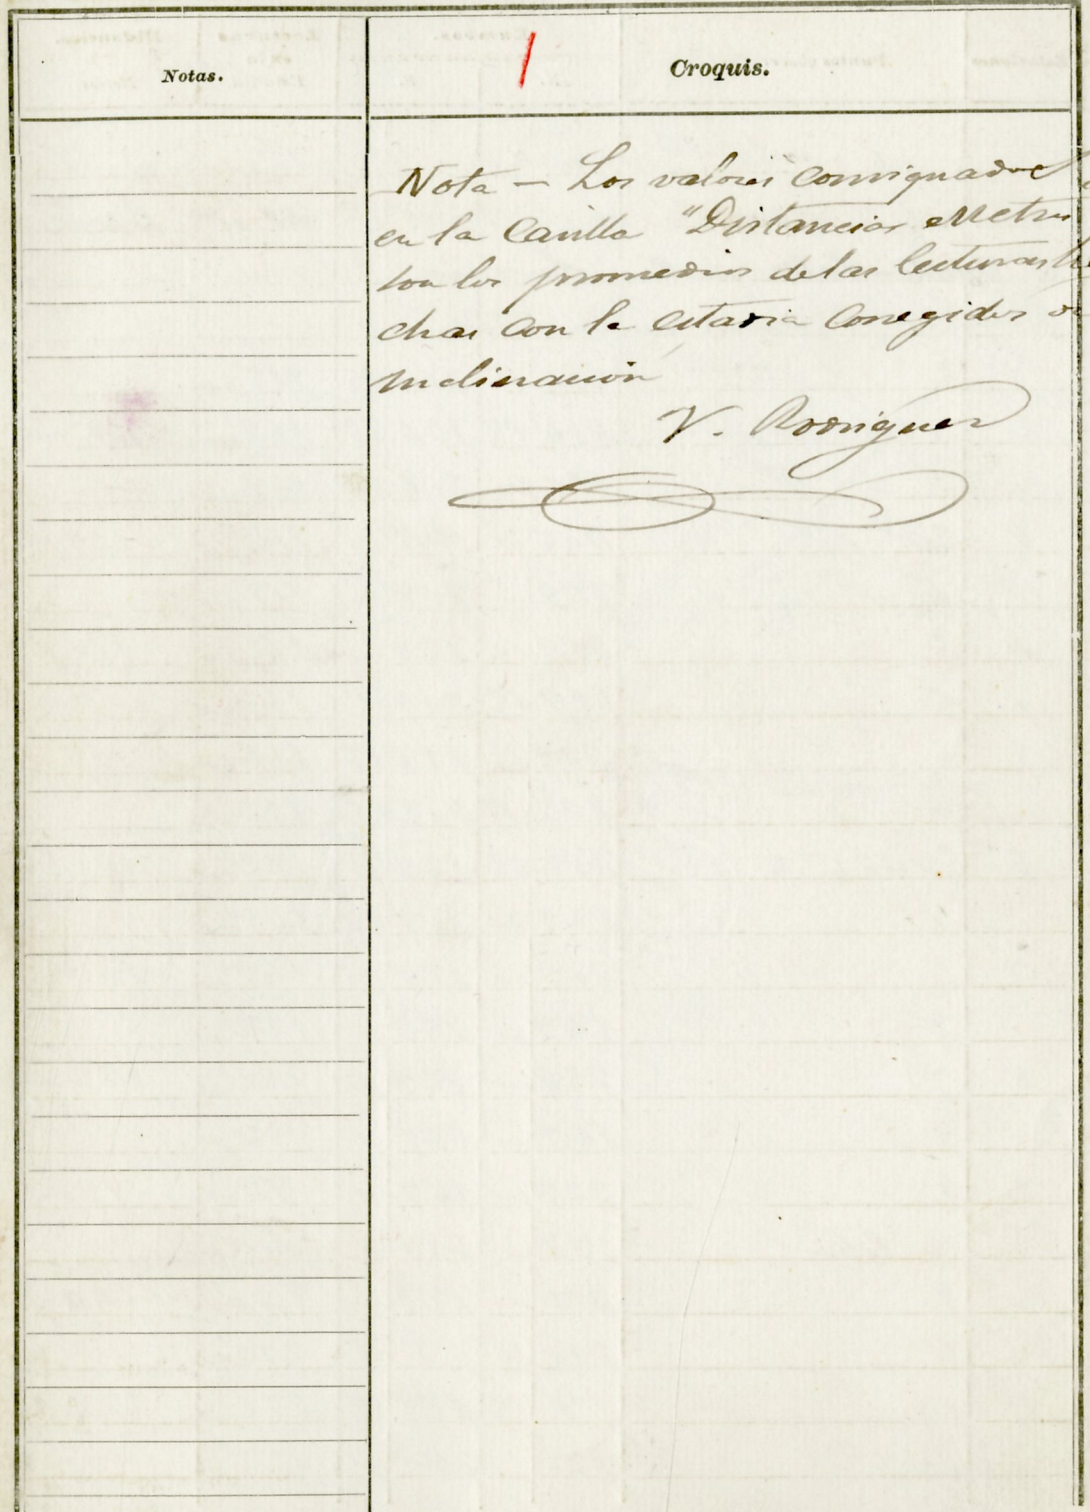 Notas.
1
Croquis.
Nota — Los valores consignados
en la Casilla "Distancias Metros
son los promedios de las lecturas he
chas con la estadia corregidos de
inclinación
V. Rodriguez